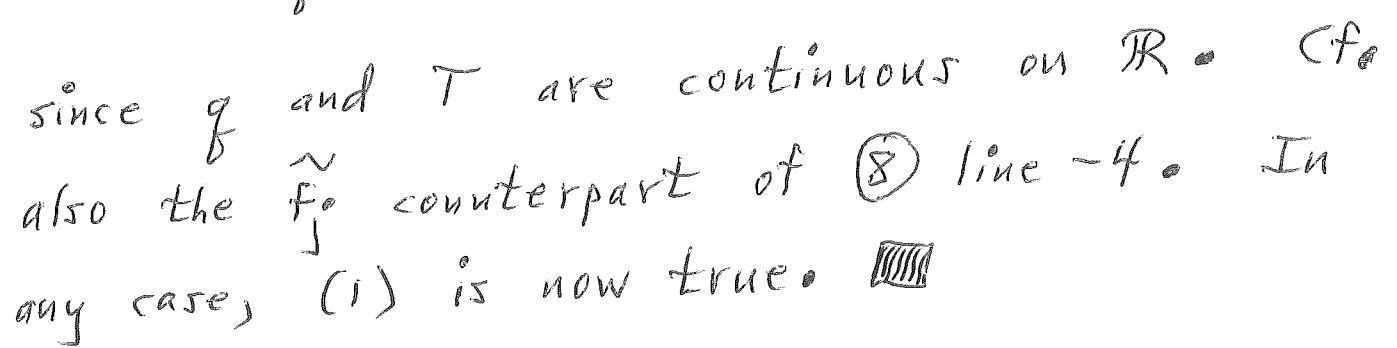 since q and T are continuous on ℝ. Cf.
also the f̃ⱼ counterpart of ⑧ line -4. In
any case, (i) is now true. ▨